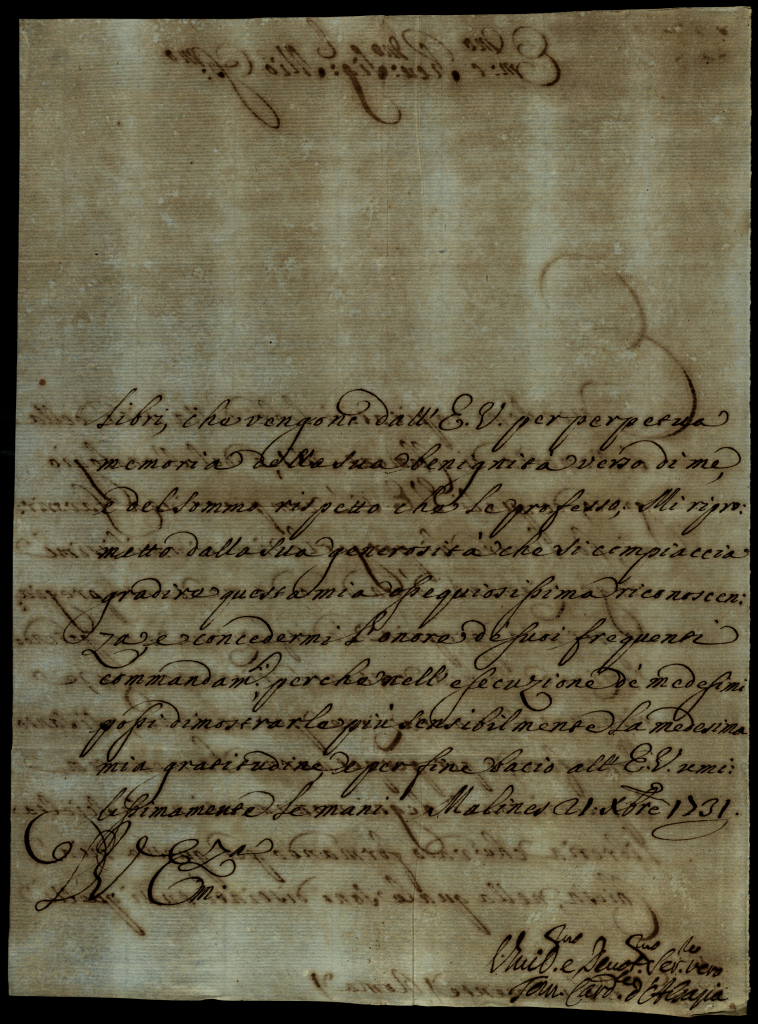 Libri, che vengono dall' E. V. per perpetua
memoria della sua benignità verso di me,
e del sommo rispetto che Le professo, Mi ripro:
metto dalla sua generosità che si compiaccia
gradire questa mia ossequiosissima riconoscen:
za, e concedermi L'onore de' suoi frequenti
commandam.ti perche nell' esecuzione de' medesimi
possi dimostrarle più sensibilmente la medesima
mia gratitudine, e per fine bacio all' E. V. umi:
lissimamente le mani. Malines 21. Xbre 1731.
Em.za
Umil.mo e Devot.mo Ser.re vero
Tom. Card.le d'Alsazia